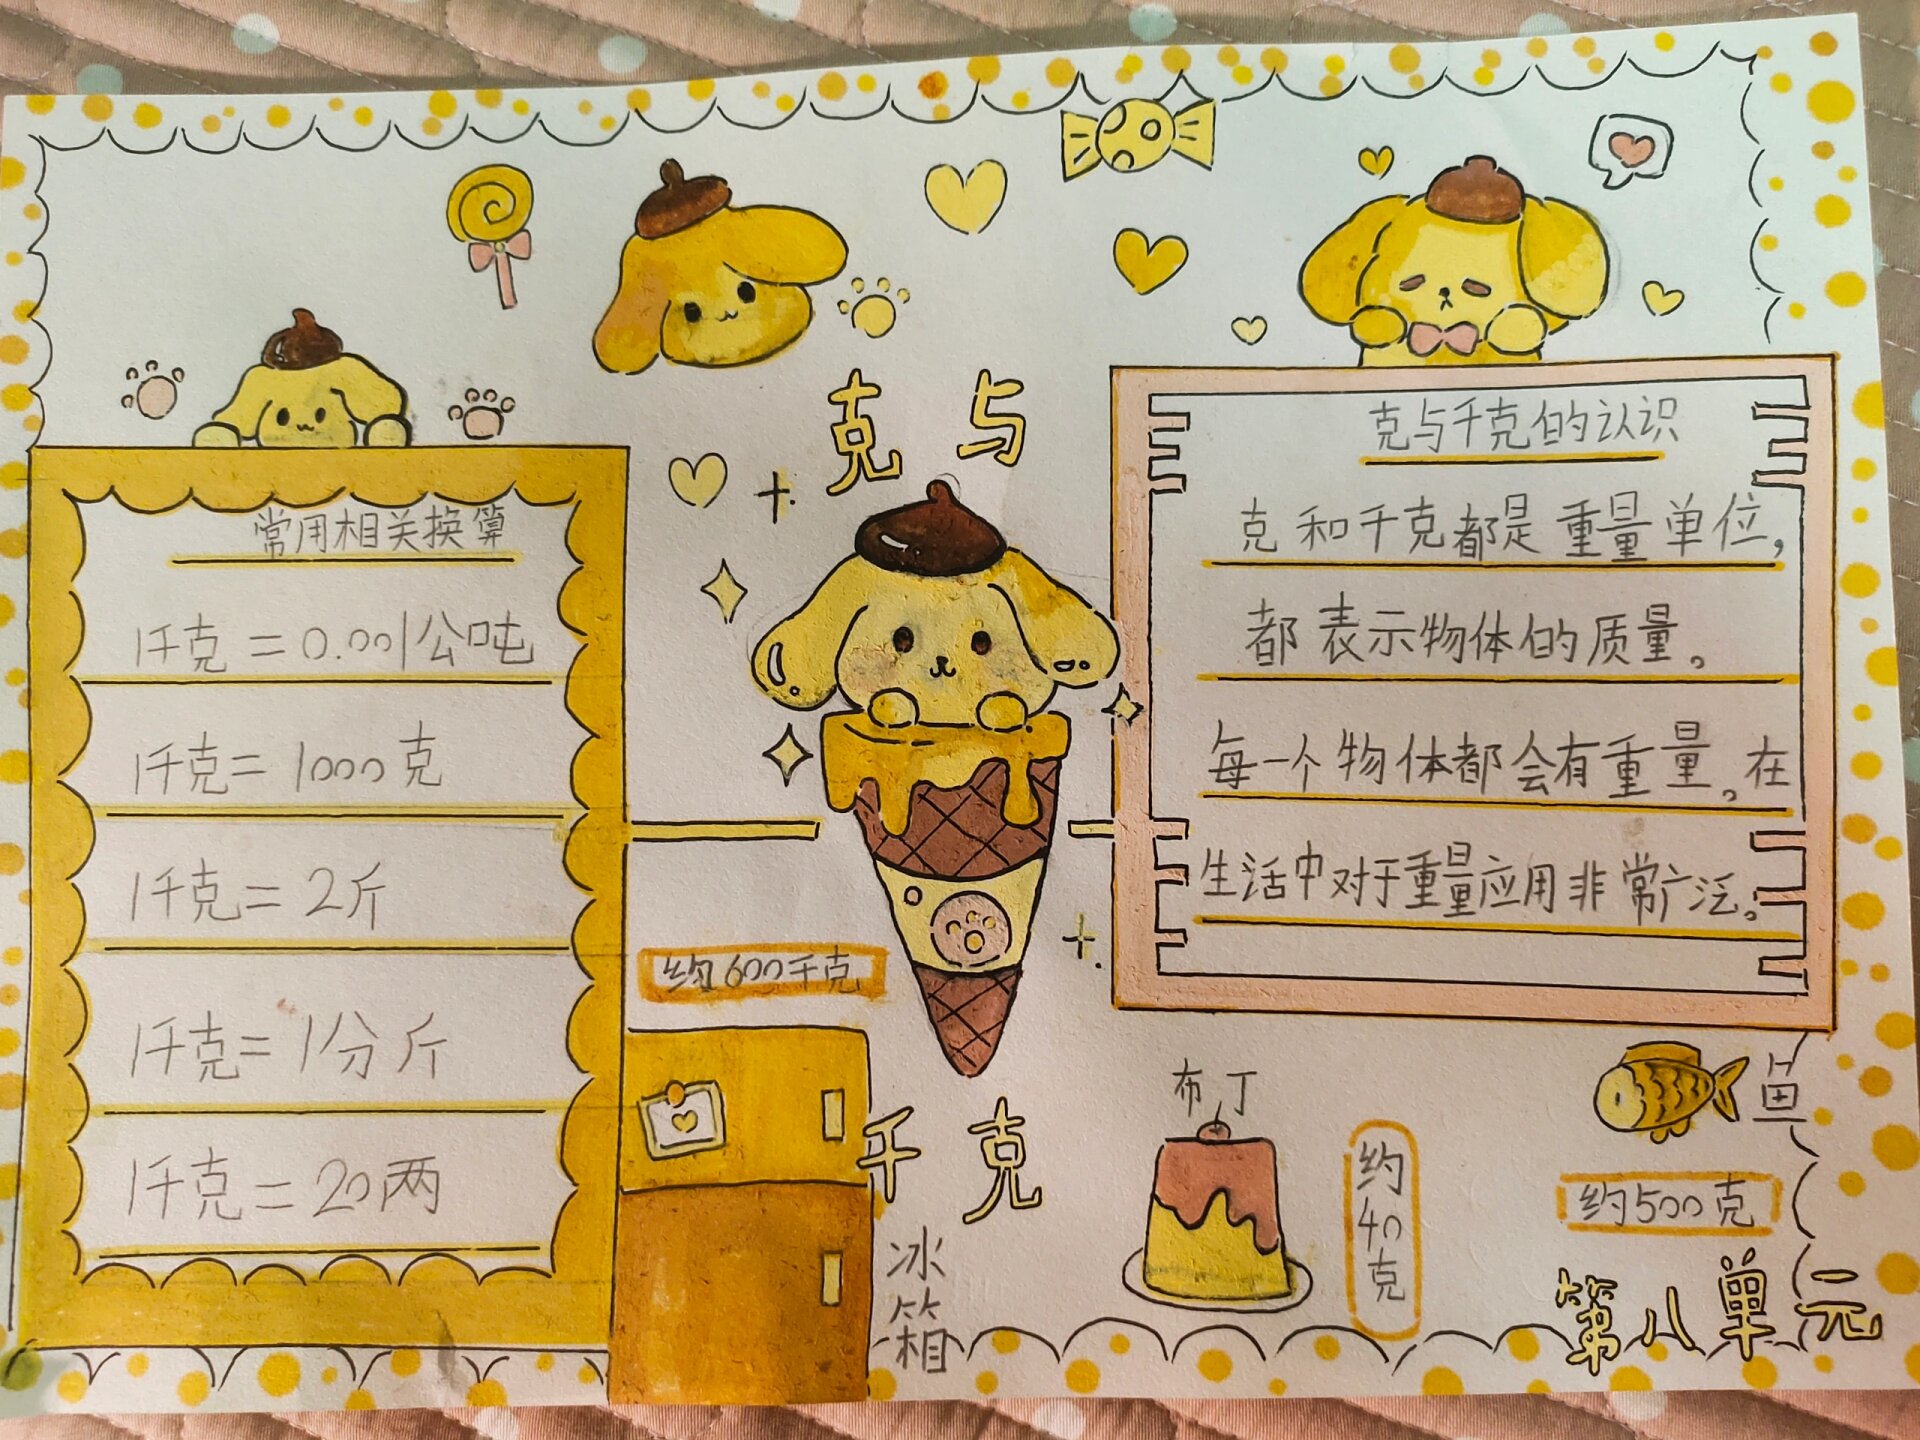 克与
千克
常用相关换算
1千克=0.001公吨
1千克=1000克
1千克=2斤
1千克=1分斤
1千克=20两
克与千克的认识
克和千克都是重量单位,
都表示物体的质量。
每一个物体都会有重量。在
生活中对于重量应用非常广泛。
约600千克
冰箱
布丁
约40克
鱼
约500克
第八单元